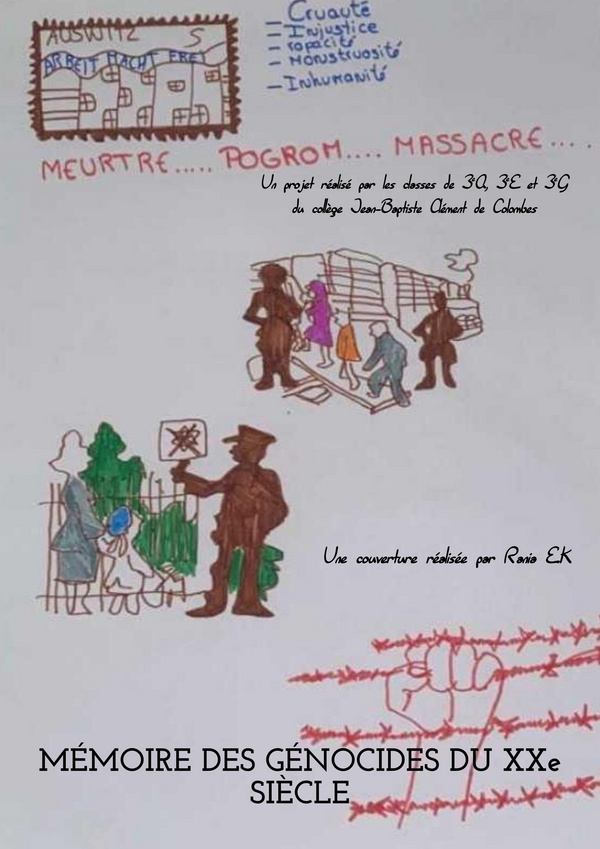 AUSWITZ S
ARBEIT MACHT FREI
- Cruauté
- Injustice
- rapacité
- Monstruosité
- Inhumanité
MEURTRE..... POGROM.... MASSACRE.... .
Un projet réalisé par les classes de 3°A, 3°E et 3°G
du collège Jean-Baptiste Clément de Colombes
Une couverture réalisée par Rania EK
MÉMOIRE DES GÉNOCIDES DU XXe
SIÈCLE